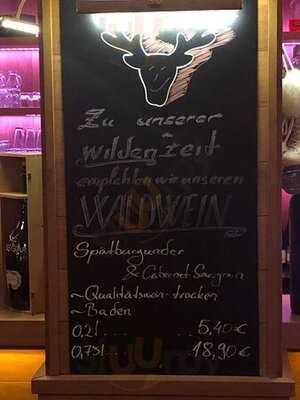 Zu unserer
wilden Zeit
empfehlen wir unseren
WALDWEIN
Spätburgunder
& Cabernet Sauvignon
~Qualitätswein trocken
~Baden
0,2l ..... 5,40€
0,75l ..... 18,90€